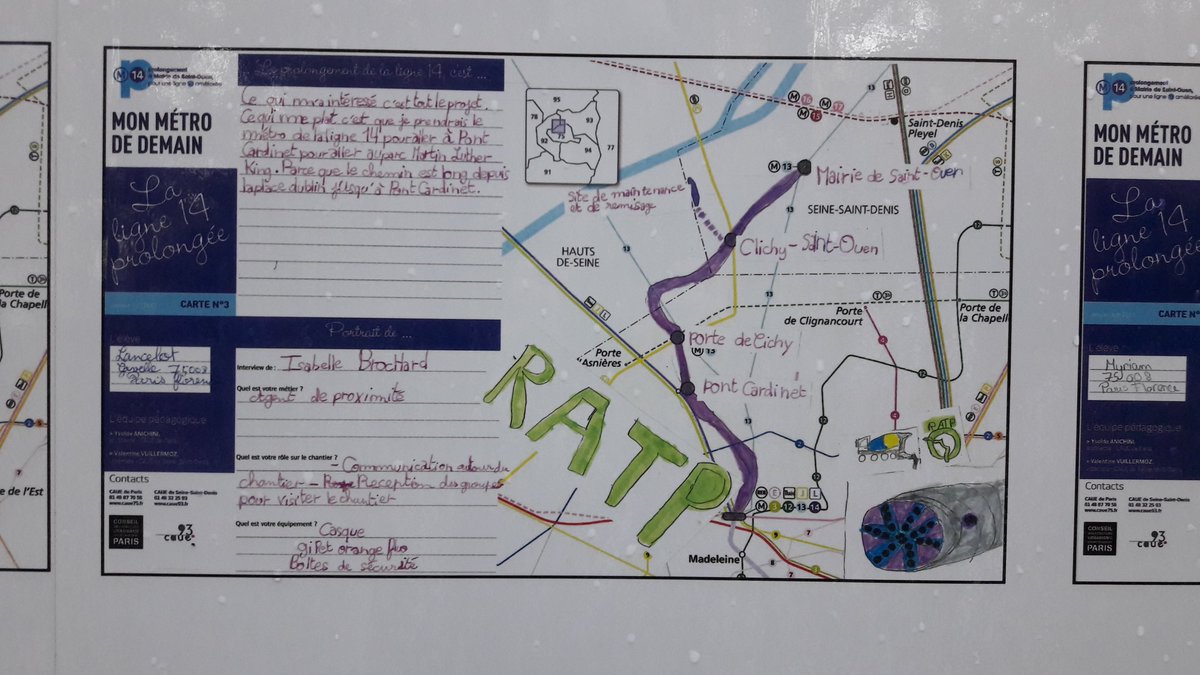 M 14 prolongement
à Mairie de Saint-Ouen,
pour une ligne 13 améliorée
MON MÉTRO
DE DEMAIN
La
ligne 14
prolongée
CARTE N°3
L'élève
75008
L'équipe pédagogique
> Yvolde ANICHINI,
> Valentine VUILLERMOZ
Contacts
CAUE de Paris
01 48 87 70 56
www.caue75.fr
CAUE de Seine-Saint-Denis
01 48 32 25 93
www.caue93.fr
CONSEIL
PARIS
93
caue
Le prolongement de la ligne 14 c'est ...
Ce qui m'a interessé c'est tout le projet.
Ce qui me plait c'est que je prendrais le
métro de la ligne 14 pour aller à Pont
Cardinet pour aller au parc Martin Luther
King. Parce que le chemin est long depuis
la place dublin jusqu'à Pont Cardinet.
Portrait de ...
Interview de : Isabelle Brochard
Quel est votre métier ?
Agent de proximité
Quel est votre rôle sur le chantier ?
- Communication autour du
chantier - Reception des groupes
pour visiter le chantier
Quel est votre équipement ?
Casque
gilet orange fluo
Bottes de sécurité
95
78
93
92
94
77
91
Saint-Denis
Pleyel
M 13
Mairie de Saint-Ouen
Site de maintenance
et de remisage
SEINE-SAINT-DENIS
Clichy-Saint-Ouen
HAUTS
DE-SEINE
Porte
de Clignancourt
Porte de
la Chapell
Porte de Clichy
M 13
Porte
d'Asnières
Pont Cardinet
RATP
RATP
Madeleine
Porte de
la Chapell
e de l'Est
M 14 prolongement
à Mairie de Saint-Ouen,
pour une ligne 13 améliorée
MON MÉTRO
DE DEMAIN
La
ligne 14
prolongée
CARTE N°
L'élève
Myriam
75008
Paris Florence
L'équipe pédagogique
> Yvolde ANICHINI,
> Valentine VUILLERMOZ
Contacts
CAUE de Paris
01 48 87 70 56
www.caue75.fr
CAUE de Seine-Saint-Denis
01 48 32 25 93
www.caue93.fr
CONSEIL
PARIS
93
caue